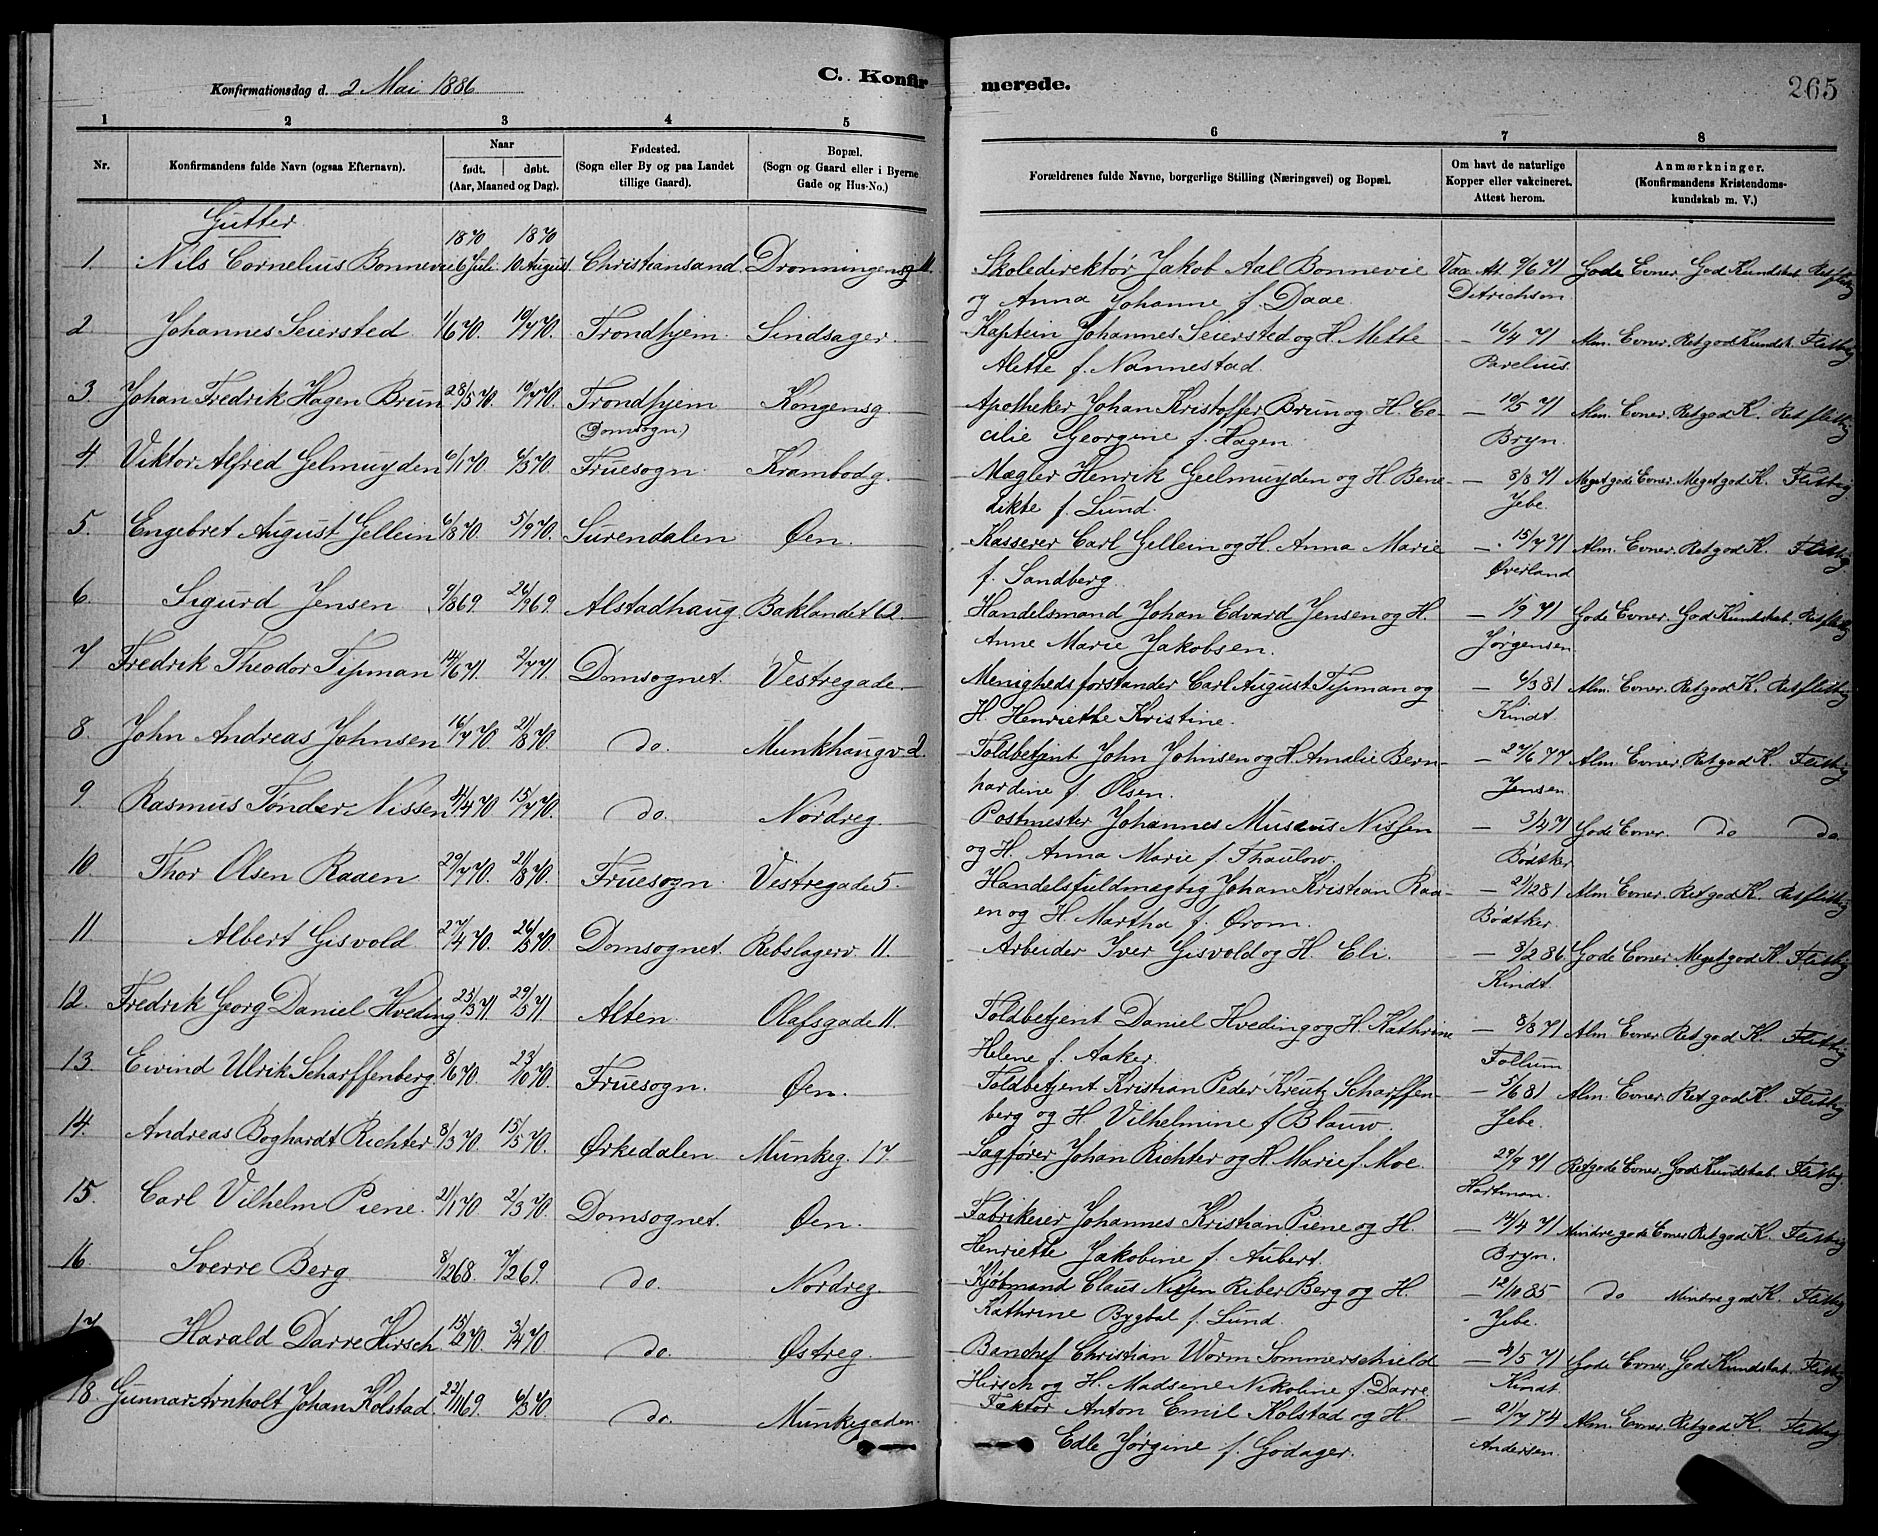 Konfirmationsdag d. 2 Mai 1886
C. Konfirmerede.
265
1 2 3 4 5 6 7 8
Nr. Konfirmandens fulde Navn (ogsaa Efternavn). Naar født. døbt. (Aar, Maaned og Dag). Fødested. (Sogn eller By og paa Landet tillige Gaard). Bopæl. (Sogn og Gaard eller i Byerne Gade og Hus-No.) Forældrenes fulde Navne, borgerlige Stilling (Næringsvei) og Bopæl. Om havt de naturlige Kopper eller vakcineret. Attest herom. Anmærkninger. (Konfirmandens Kristendomskundskab m. V.)
Gutter
1870 1870
1. Nils Cornelius Bonnevie 6 Juli 10 August Christiansand. Dronningensg. Skoledirektør Jakob Aal Bonnevie Vac. Att. 9/6 71 Gode Evner. God Kundskab. Retflittig
og Anna Johanne f. Daae. Ditrichson
2 Johannes Seiersted 1/6 70. 19/7 70. Trondhjem Sindsager. Kaptein Johannes Seiersted og H. Mette — 16/4 71 Alm. Evner. Retgod Kundsk. Flittig
Alette f. Nannestad. Parelius.
3. Johan Fredrik Hagen Brun 28/5 70. 19/7 70. Trondhjem Kongensg. Apotheker Johan Kristoffer Brun og H. Ce- — 10/5 71 Alm. Evner. Retgod K. Retflittig
(Domsogn) cilie Georgine f. Hagen. Bryn.
4. Viktor Alfred Gelmuyden 6/1 70. 6/3 70. Fruesogn. Krambodg. Mægler Henrik Geelmuyden og H Bene- — 8/8 71 Meget gode Evner. Meget god K. Flittig
dikte f. Lund. Jebe.
5. Engebret August Gellein 6/8 70. 5/9 70. Surendalen Øen. Kasserer Carl Gellein og H. Anna Marie — 15/7 71 Alm. Evner. Retgod K. Flittig
f. Sandberg. Øverland
6. Sigurd Jensen 9/8 69. 26/9 69. Alstadhaug. Baklandet 62. Handelsmand Johan Edvard Jensen og H. — 1/9 71 Gode Evner. God Kundskab. Retflittig
Anne Marie Jakobsen. Jørgensen
7 Fredrik Theodor Tipman 14/6 71. 2/7 71. Domsognet. Vestregade. Menighedsforstander Carl August Tipman og — 6/3 81 Alm. Evner. Retgod K. Retflittig
H. Henriette Kristine. Kindt.
8. John Andreas Johnsen 16/7 70. 21/8 70. do. Munkhaugv. 2. Toldbetjent John Johnsen og H. Amalie Bern- — 27/6 77 Alm. Evner. Retgod K. Flittig
hardine f. Olsen. Jensen.
9 Rasmus Tønder Nissen 4/4 70 15/7 70. do. Nordreg. Postmester Johannes Musæus Nissen — 3/4 71 Gode Evner. do do
og H. Anna Marie f. Thaulow. Bødtker
10 Thor Olsen Raaen 29/7 70. 21/8 70. Fruesogn. Vestregade 5. Handelsfuldmægtig Johan Kristian Raa- — 21/12 81 Alm. Evner. Retgod K. Retflittig
en og H. Martha f. Ørom. Bødtker.
11. Albert Gisvold 27/4 70. 26/5 70. Domsognet. Rebslagerv. 11. Arbeider Iver Gisvold og H. Eli. — 3/2 86 Gode Evner. Meget god K. Flittig
Kindt.
12. Fredrik Georg Daniel Hveding 25/3 71. 29/5 71. Alten. Olafsgade 11. Toldbetjent Daniel Hveding og H. Kathrine — 8/8 71 Alm. Evner. Retgod K. Flittig
Helene f. Aaker. Follum
13. Eivind Ulrik Scharffenberg. 8/6 70. 23/10 70. Fruesogn. Øen. Toldbetjent Kristian Peder Kreutz Scharffen- — 5/6 81 Alm. Evner. Retgod K. Flittig
berg og H. Vilhelmine f Blauw. Jebe.
14. Andreas Boghardt Richter 8/3 70. 15/5 70. Ørkedalen. Munkeg. 17. Sagfører Johan Richter og H. Marie f. Moe. 29/9 71 Retgode Evner. God Kundskab. Flittig.
Hartman.
15. Carl Vilhelm Piene. 21/1 70. 2/3 70. Domsognet. Øen. Fabrikeier Johannes Kristian Piene og H. — 14/4 71 Mindre gode Evner Retgod K. Flittig
Henriette Jakobine f. Aubert. Bryn.
16. Sverre Berg. 8/12 68. 7/2 69. do. Nordreg. Kjøbmand Claus Nissen Riber Berg og H. — 12/10 85 do Mindre god K. Flittig
Kathrine Bygbal f. Lund. Jebe.
17 Harald Darre Hirsch 15/2 70. 3/4 70 do. Østreg. Banchef Christian Worm Sommerschield — 2/5 71 Gode Evner. God Kundskab. Flittig
Hirsch og H. Madsine Nikoline f. Darre Kindt.
18. Gunnar Arnholt Johan Kolstad 22/11 69. 6/3 70. do. Munkegaden. Faktor Anton Emil Kolstad og H. — 21/7 74 Alm. Evner. Retgod K. Flittig
Edle Jørgine f. Godager. Andersen.